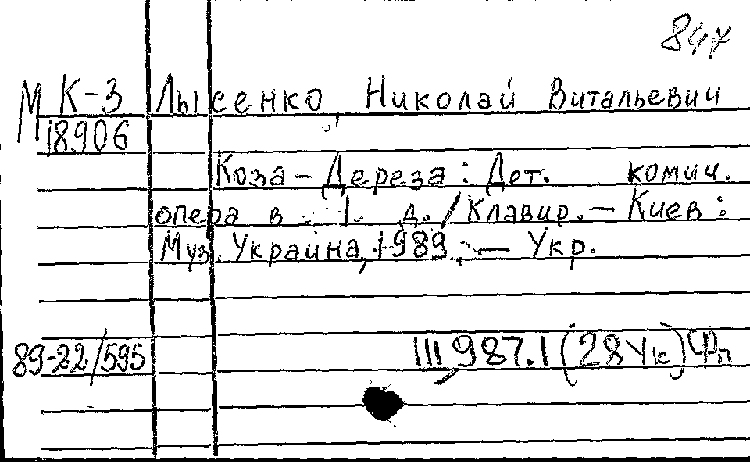 847
М К-3 Лысенко, Николай Витальевич
18906
Коза-Дереза: Дет. комич.
опера в 1 д./Клавир.— Киев:
Муз. Украина, 1989.— Укр.
89-22/595
III,987.1(28Ук)Фп